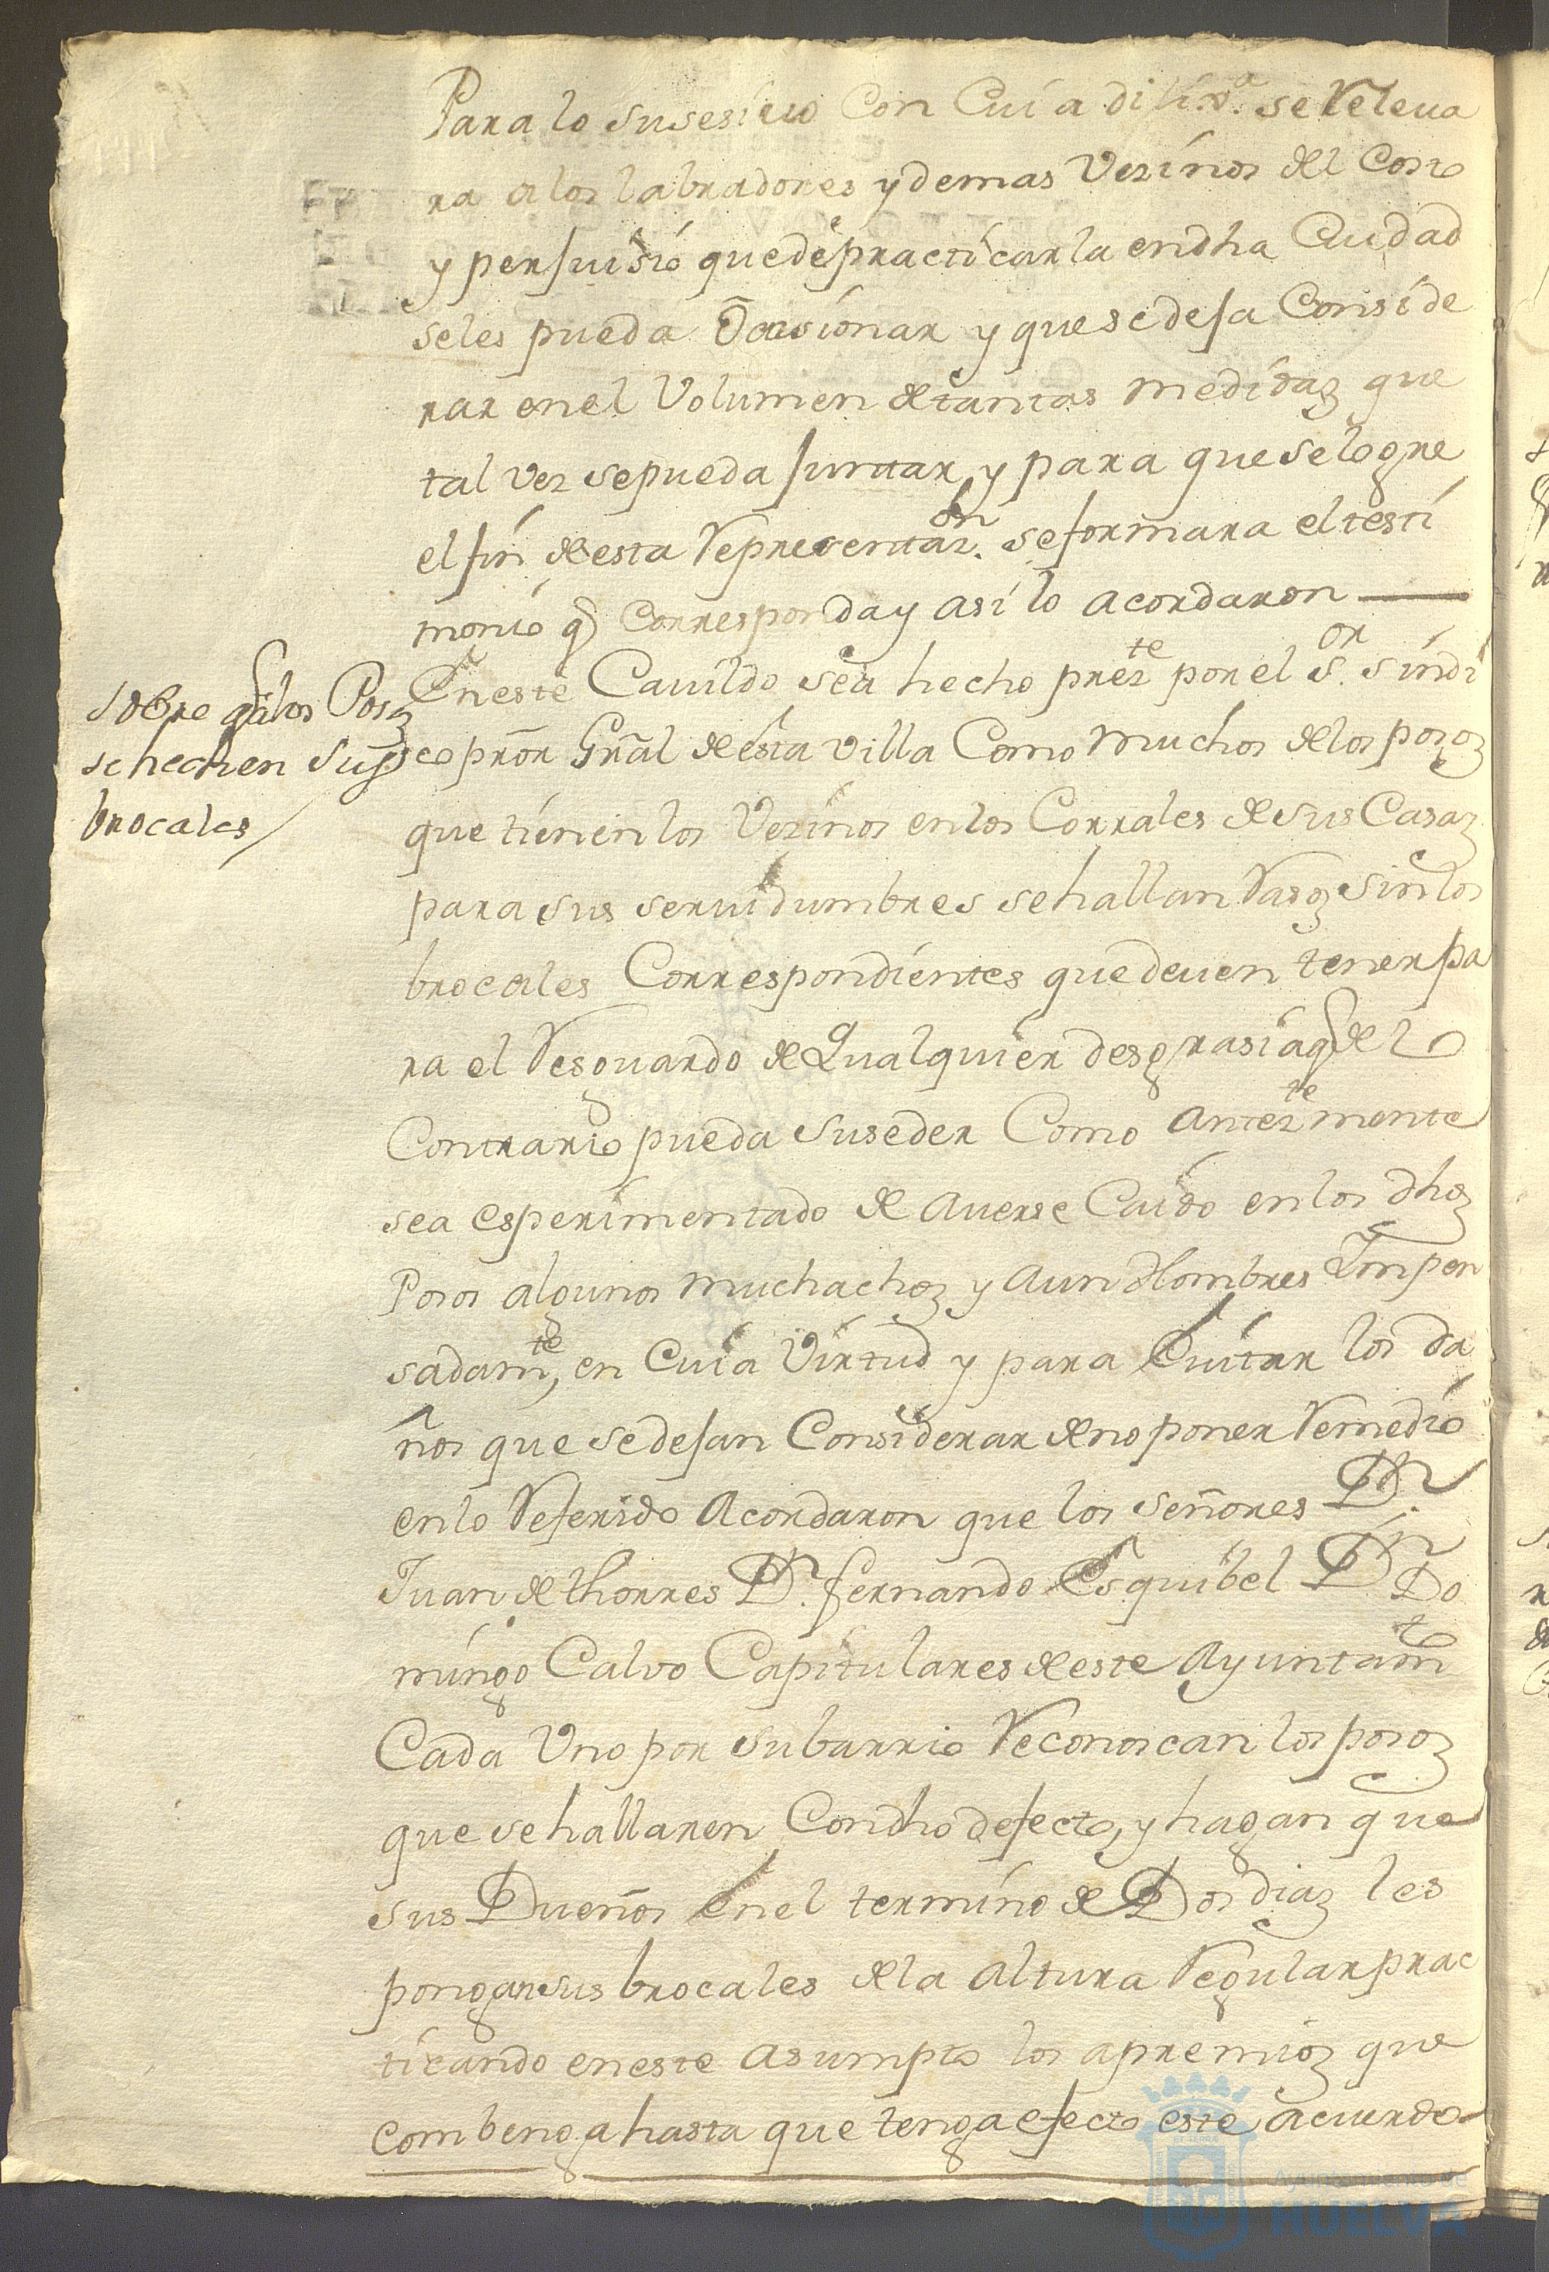 Para lo susesivo Con Cuia dilixª. se Releua
ra a los labradores y demas Vezinos del Costo
y perjuisio que de practicarla en dha Ciudad
se les pueda Ocasionar y que se deja Conside
rar en el Volumen de tantas medidas que
tal vez se pueda juntar, y para que se logre
el fin de esta Representazon. se formara el testi
monio q Corresponda y asi lo acordaron
En este Cavildo se a hecho prezte por el Sor. sindi
co pror Gral de esta villa Como muchos de los posos
que tienen los Vezinos en los Corrales de sus Casas
para sus seruidumbres se hallan Rasos sin los
brocales Correspondientes que deuen tener pa
ra el Resguardo de qualquier desgrasia q de lo
Contrario pueda suseder Como antezte mente
se a esperimentado de averse Caido en los dhos
Posos algunos muchachos y aun Hombres Impen
sadamte, en Cuia Virtud y para Euitar los da
ños que se dejan Considerar de no poner Remedio
en lo Referido Acordaron que los señores Dn.
Juan de thorres Dn. fernando Esquibel Dn Do
mingo Calvo Capitulares de este Ayuntamto
Cada Uno por su barrio Reconoscan los posos
que se hallaren Con dho defecto, y hagan que
sus Dueños en el termino de Dos dias les
pongan sus brocales de la altura Regular prac
ticando en este asumpto los apremios que
combenga hasta que tenga efecto este acuerdo
sobre q a los Posos
se hechen sus
brocales
Ayuntamiento de
HUELVA